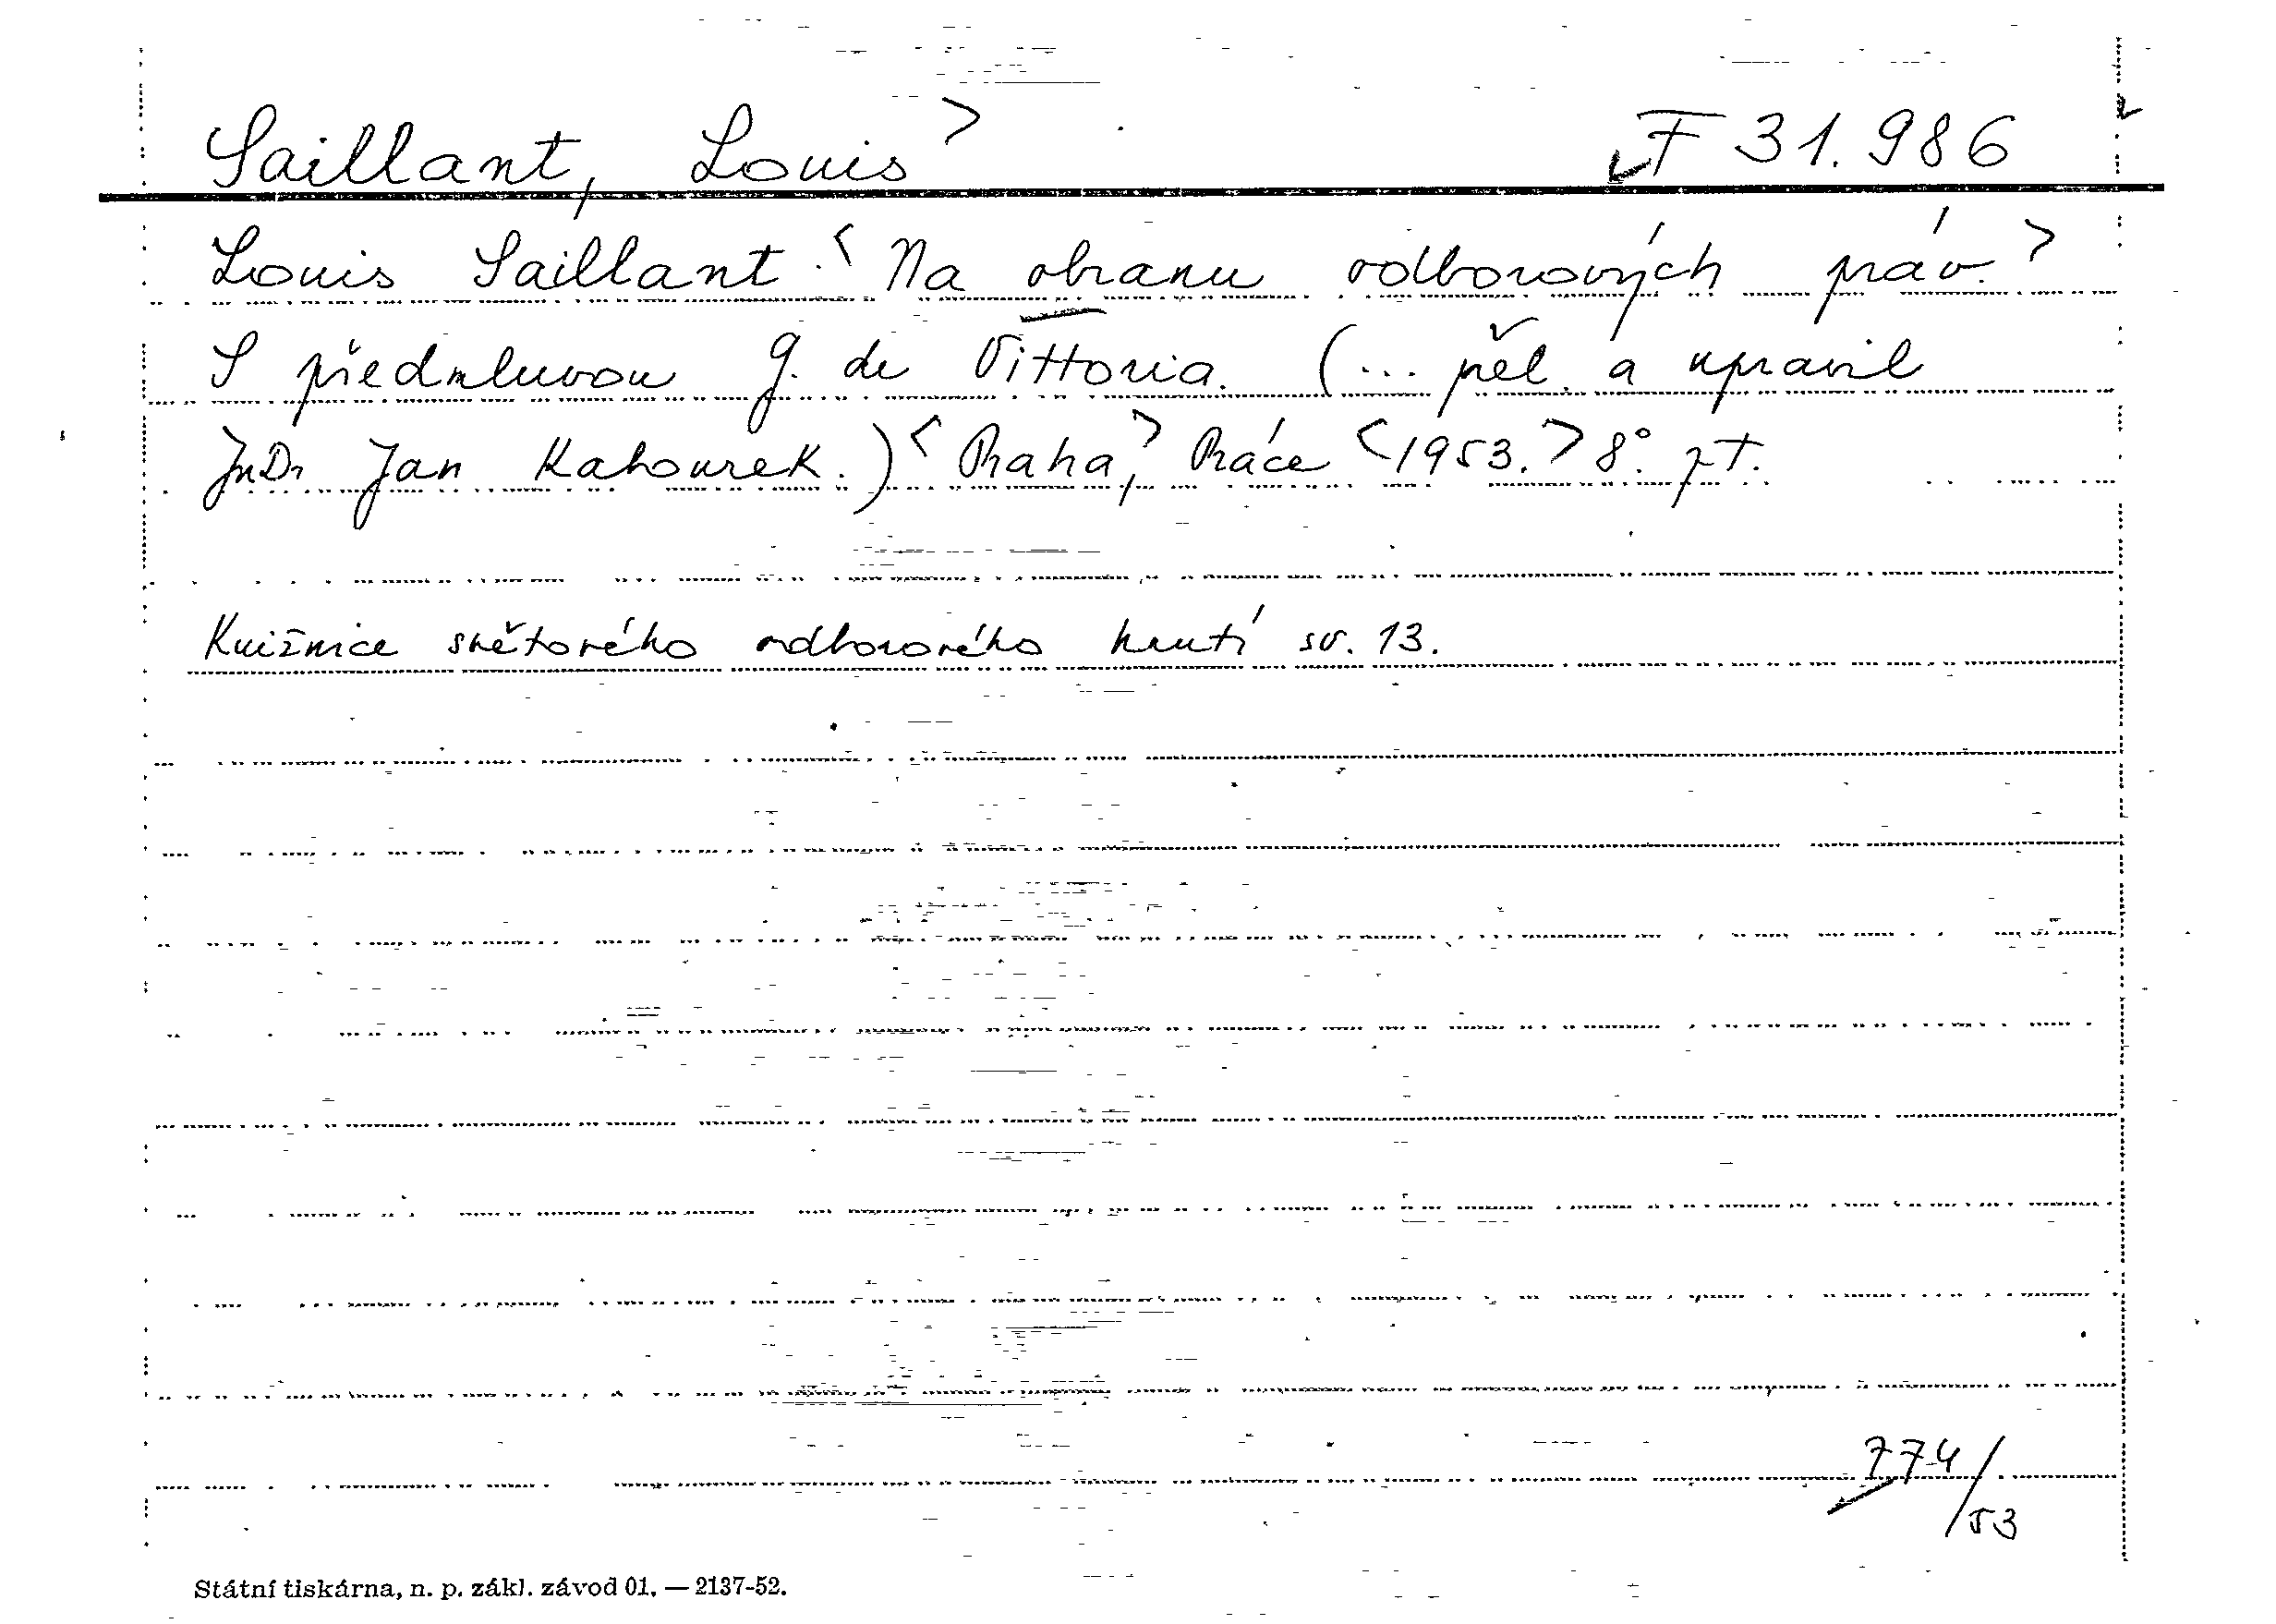 Saillant, Louis> F 31.986
Louis Saillant.<Na obranu odborových práv.>
S předmluvou G. de Vittoria. (... přel. a upravil
JuDr Jan Kahourek.)<Praha,> Práce <1953.> 8°.
Knižnice světového odborového hnutí sv. 13.
774/53
Státní tiskárna, n. p. zákl. závod 01. — 2137-52.